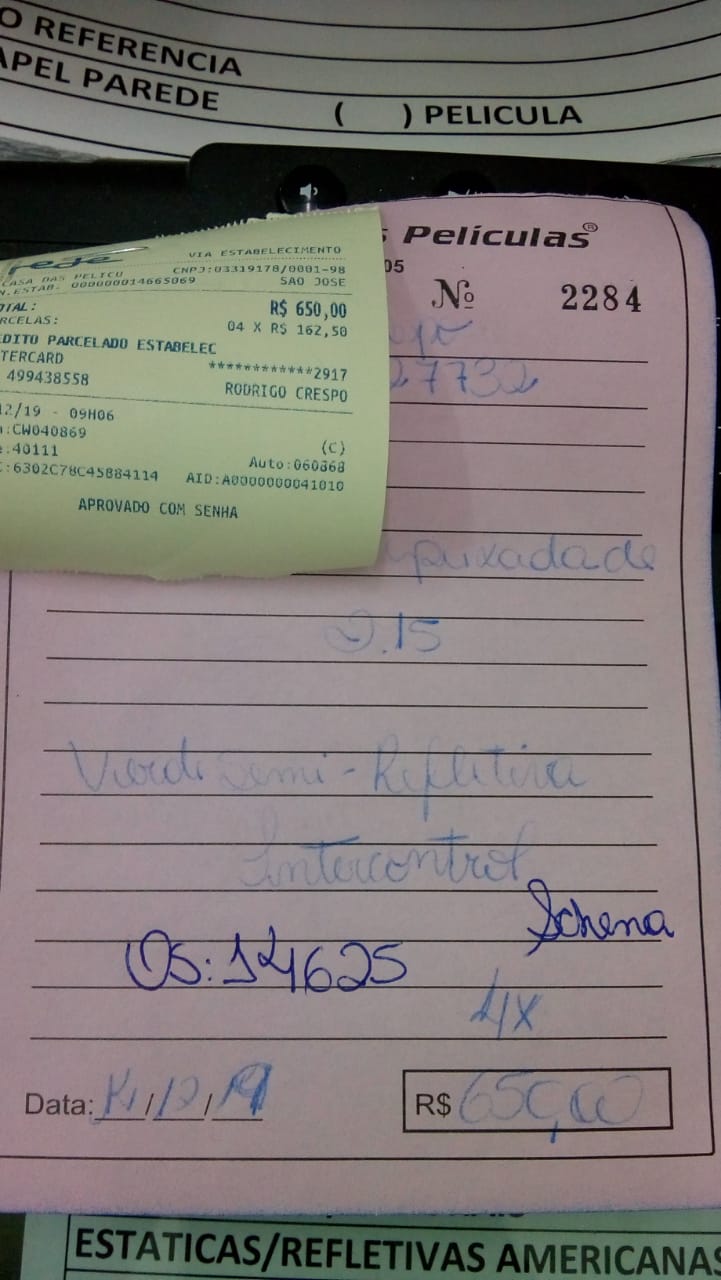 O REFERENCIA
APEL PAREDE
( ) PELICULA
s Películas®
05
Nº 2284
27732
rede
VIA ESTABELECIMENTO
CASA DAS PELICU CNPJ:03319178/0001-98
N.ESTAB. 000000014665069 SAO JOSE
OTAL: R$ 650,00
RCELAS: 04 X R$ 162,50
EDITO PARCELADO ESTABELEC
TERCARD ************2917
499438558 RODRIGO CRESPO
12/19 - 09H06
:CW040869 (C)
:40111 Auto:060868
C:6302C78C45884114 AID:A0000000041010
APROVADO COM SENHA
puxada de
2.15
Verde Semi-Refletiva
Intercontrol
Schena
OS:14625
4X
Data: /12/19 R$ 650,00
ESTATICAS/REFLETIVAS AMERICANAS